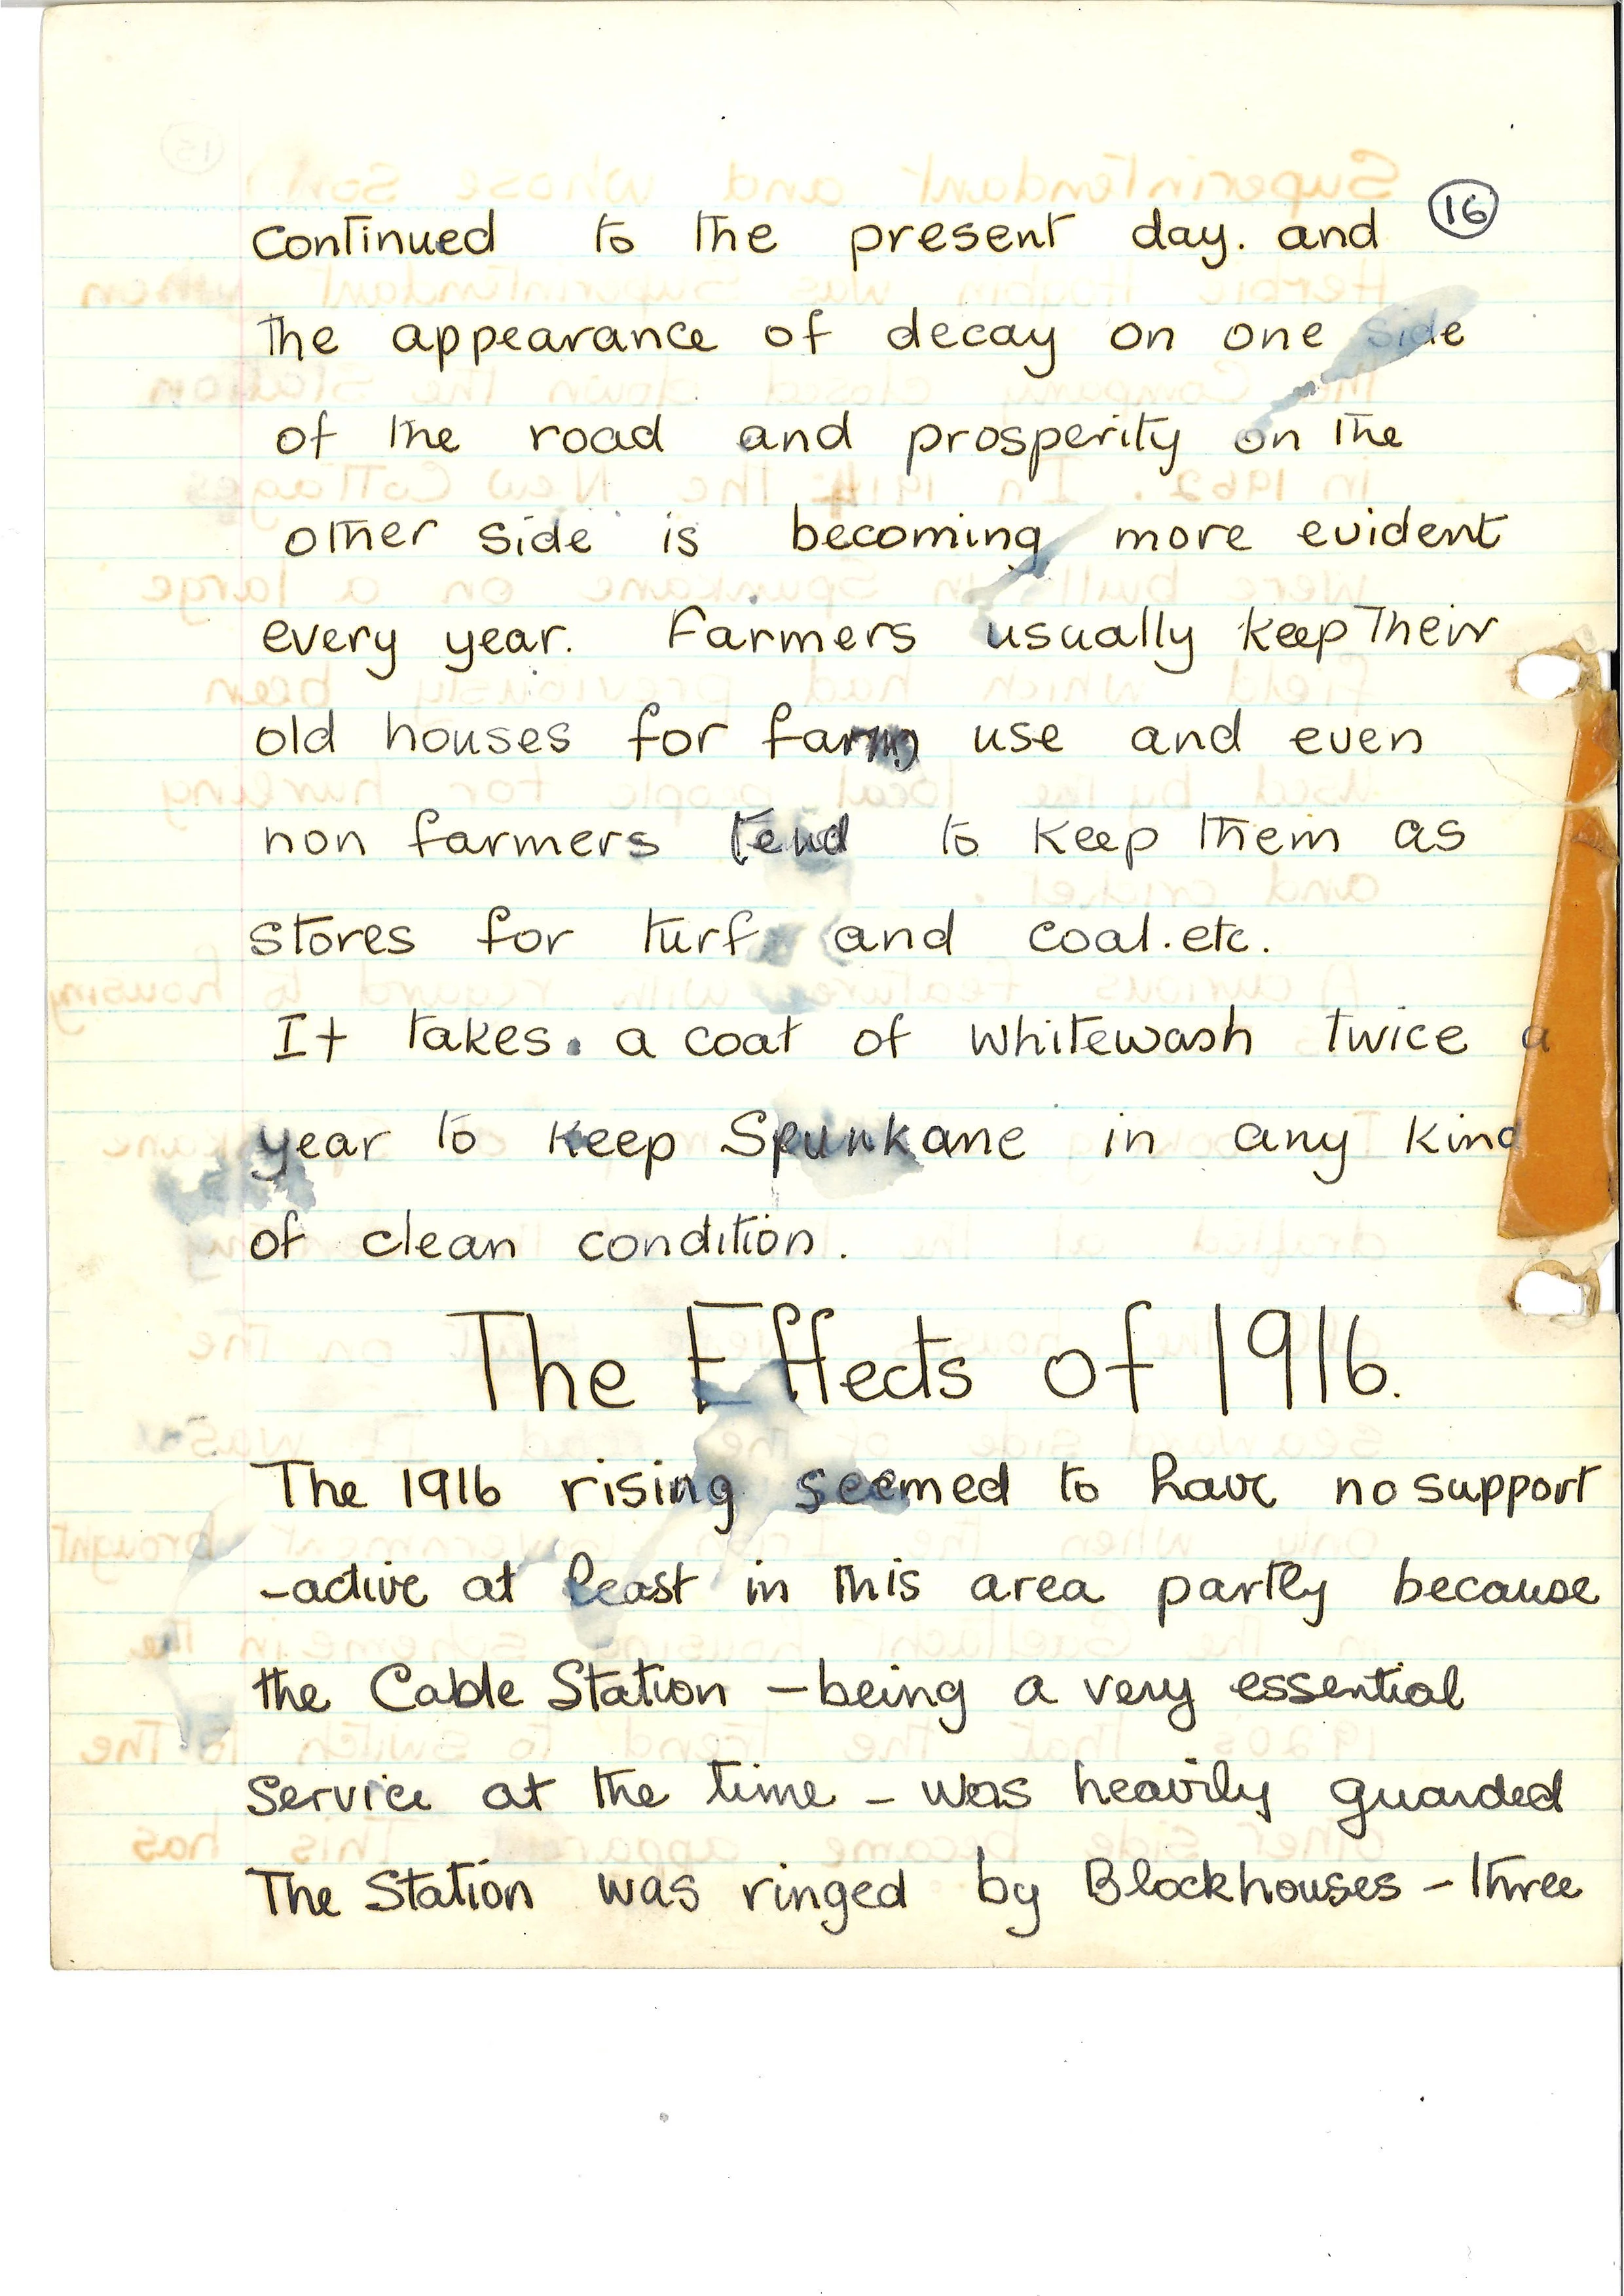 16
continued to the present day. and
the appearance of decay on one side
of the road and prosperity on the
other side is becoming more evident
every year. Farmers usually keep their
old houses for farm use and even
non farmers tend to keep them as
stores for turf and coal.etc.
It takes. a coat of whitewash twice a
year to keep Spunkane in any kind
of clean condition.
The Effects of 1916.
The 1916 rising seemed to have no support
-active at least in this area partly because
the Cable Station - being a very essential
Service at the time - was heavily guarded
The Station was ringed by Blockhouses - three